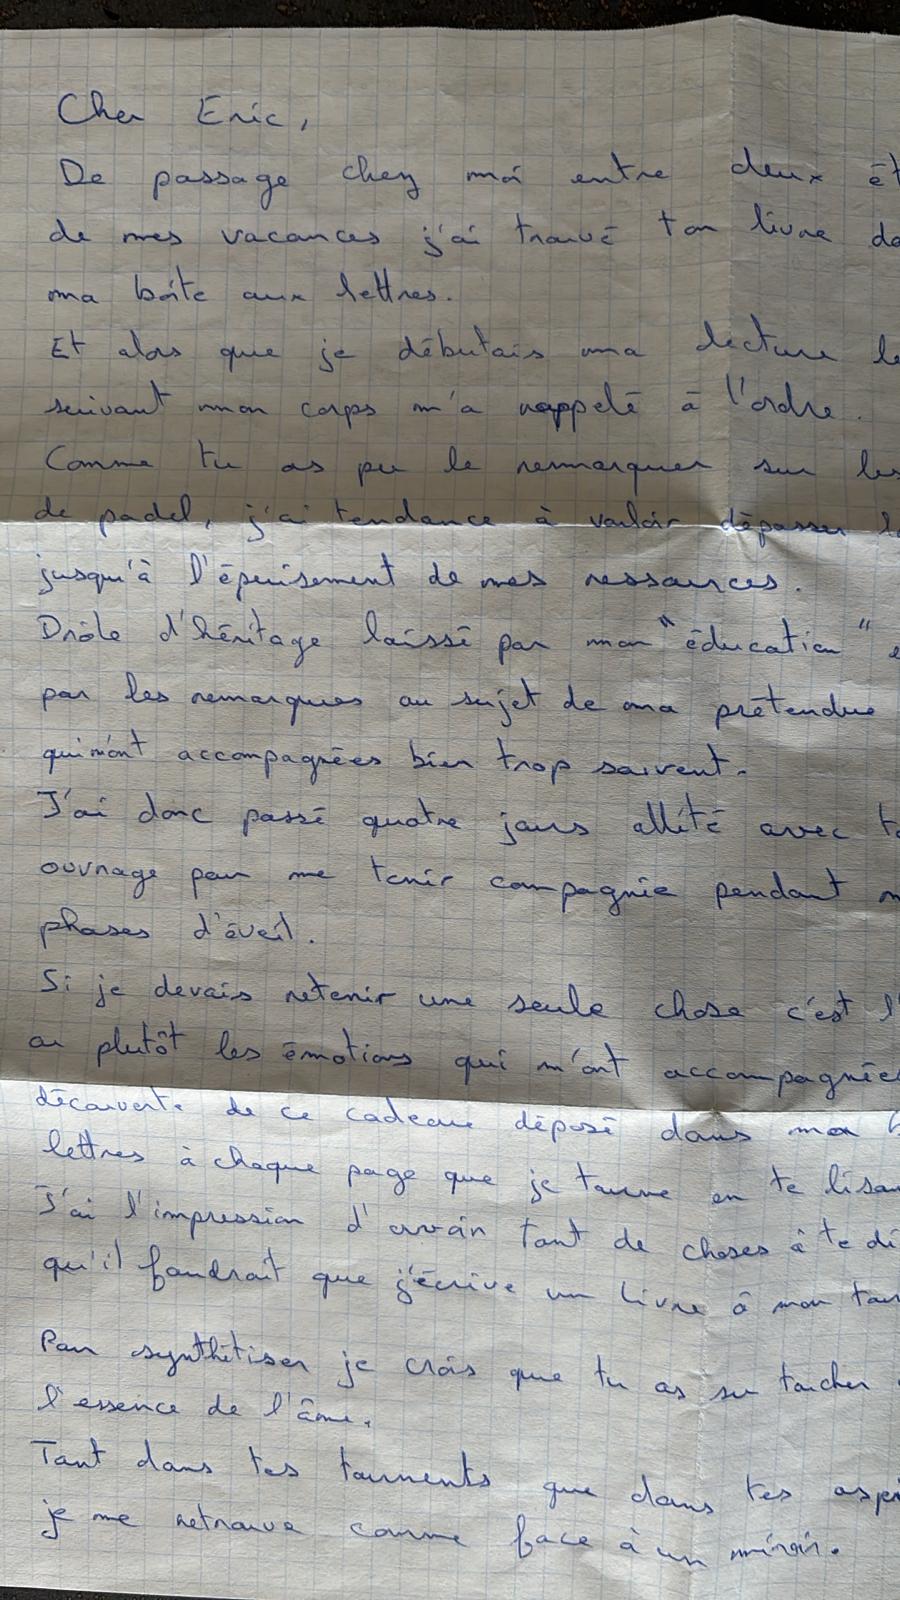 Cher Eric,
De passage chez moi entre deux ét
de mes vacances j'ai trouvé ton livre da
ma boîte aux lettres.
Et alors que je débutais ma lecture le
suivant mon corps m'a rappelé à l'ordre.
Comme tu as pu le remarquer sur les
de padel, j'ai tendance à vouloir dépasser l
jusqu'à l'épuisement de mes ressources.
Drôle d'héritage laissé par mon "éducation" e
par les remarques au sujet de ma prétendue
qui m'ont accompagnées bien trop souvent.
J'ai donc passé quatre jours allité avec to
ouvrage pour me tenir compagnie pendant m
phases d'éveil.
Si je devais retenir une seule chose c'est l'
ou plutôt les émotions qui m'ont accompagnées
découverte de ce cadeau déposé dans ma b
lettres à chaque page que je tourne en te lisan
J'ai l'impression d'avoir tant de choses à te di
qu'il faudrait que j'écrive un livre à mon tour
Pour synthétiser je crois que tu as su toucher
l'essence de l'âme.
Tant dans tes tourments que dans tes aspi
je me retrouve comme face à un miroir.